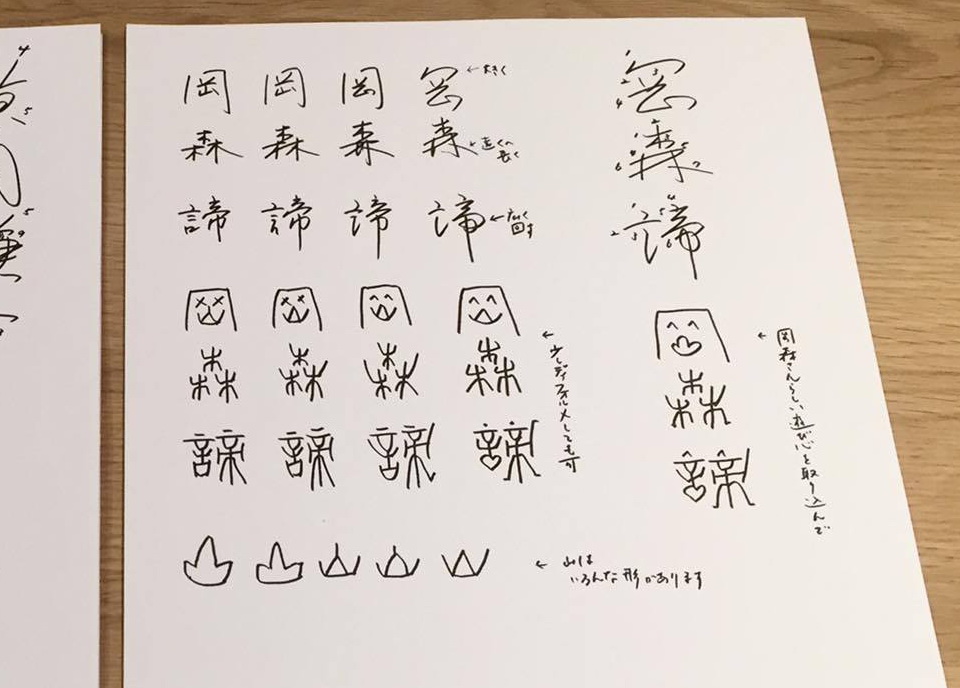 岡 岡 岡 岡 ←大きく
森 森 森 森 ←遠くへ長く
諦 諦 諦 諦 ←広く回す
岡
森
諦
岡 岡 岡 岡
森 森 森 森
諦 諦 諦 諦
←少しディフォルメしても可
岡
森
諦
←岡森さんらしい遊び心を取り込んで
山 山 山 山 山
←山は
いろんな形があります